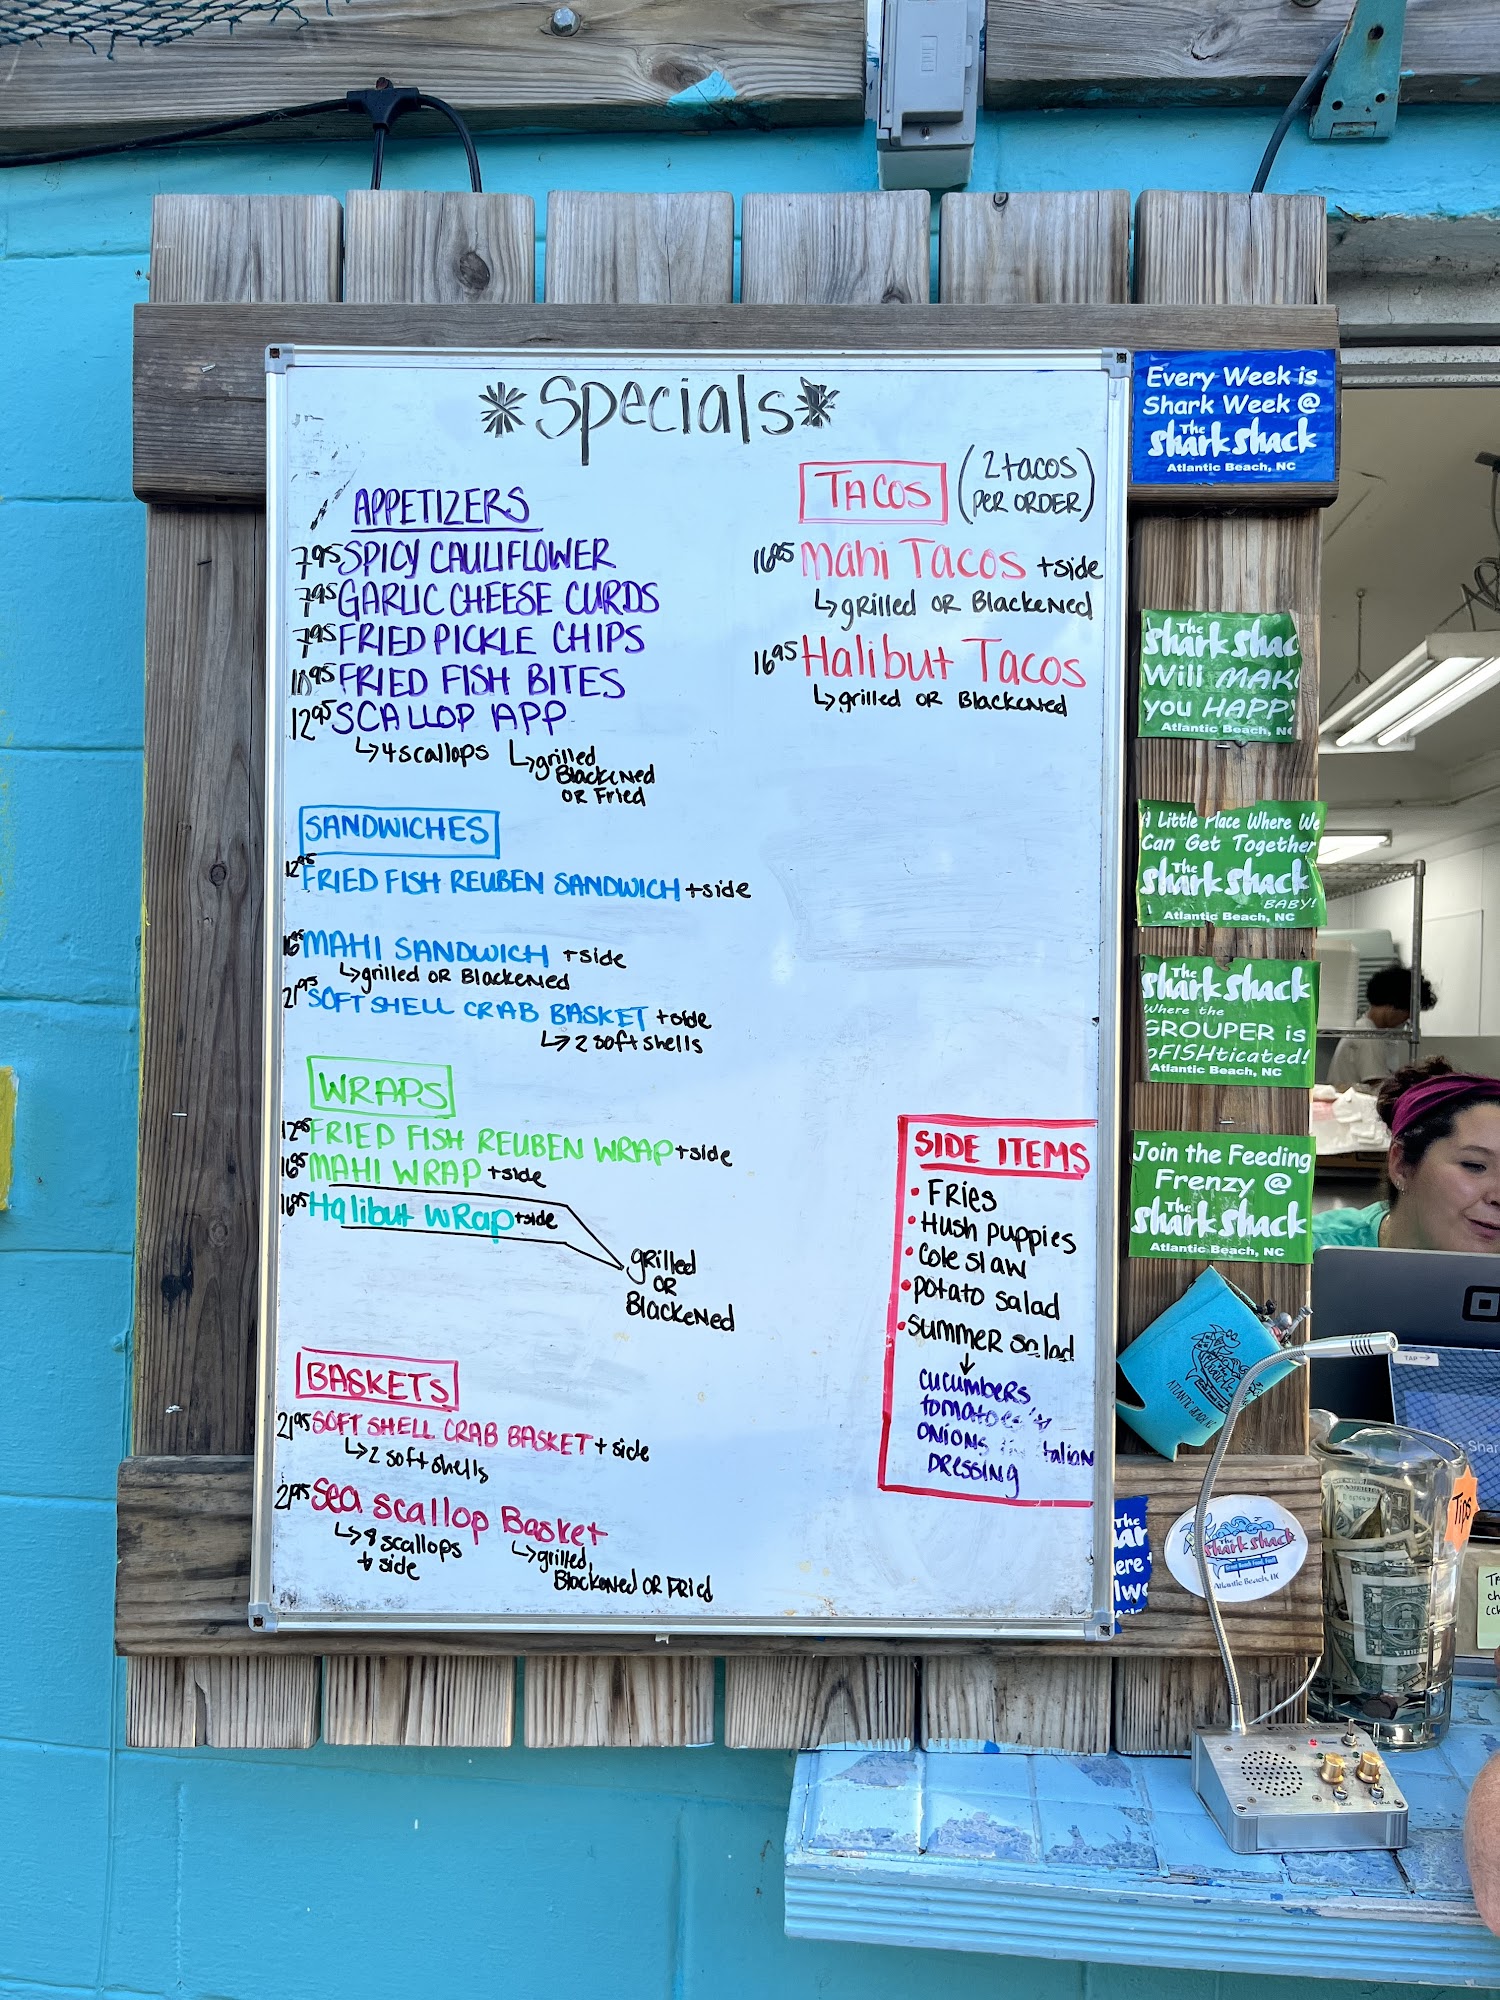 *Specials*
APPETIZERS
7.95 SPICY CAULIFLOWER
7.95 GARLIC CHEESE CURDS
7.95 FRIED PICKLE CHIPS
10.95 FRIED FISH BITES
12.95 SCALLOP APP
↳ 4 scallops ↳ grilled
Blackened
OR Fried
SANDWICHES
12.95 FRIED FISH REUBEN SANDWICH + side
16.95 MAHI SANDWICH + side
↳ grilled OR Blackened
21.95 SOFT SHELL CRAB BASKET + side
↳ 2 soft shells
WRAPS
12.95 FRIED FISH REUBEN WRAP + side
16.95 MAHI WRAP + side
16.95 Halibut WRap + side
gRilled
OR
Blackened
BASKETS
21.95 SOFT SHELL CRAB BASKET + side
↳ 2 soft shells
21.95 Sea scallop Basket
↳ 8 scallops ↳ grilled,
+ side Blackened OR Fried
TACOS (2 tacos
PER ORDER)
16.95 Mahi Tacos + side
↳ gRilled OR Blackened
16.95 Halibut Tacos
↳ grilled OR Blackened
SIDE ITEMS
• FRies
• Hush puppies
• Cole slaw
• potato salad
• SUMMER salad
↓
CUCUMBERS
tomatoes
ONIONS Italian
DRESSING
Every Week is
Shark Week @
The
Shark Shack
Atlantic Beach, NC
The
Shark Shac
Will MAK
you HAPPY
Atlantic Beach, NC
A Little Place Where We
Can Get Together
The
Shark Shack
BABY!
Atlantic Beach, NC
The
Shark Shack
Where the
GROUPER is
oFISHticated!
Atlantic Beach, NC
Join the Feeding
Frenzy @
The
Shark Shack
Atlantic Beach, NC
ATLANTIC BEACH, NC
The
Shark Shack
Great Beach Food, Fast!
Atlantic Beach, NC
TAP →
Shar
Tips